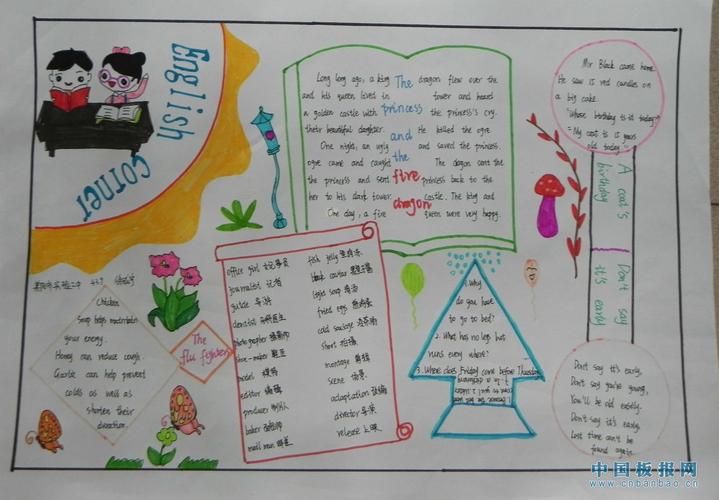 English
corner
Long long ago, a king
and his queen lived in
a golden castle with
their beautiful daughter.
One night, an ugly
ogre came and caught
the princess and sent
her to his dark tower.
One day, a fire
The
princess
and
the
fire
dragon
dragon flew over the
tower and heard
the princess's cry.
He killed the ogre
and saved the princess.
The dragon sent the
princess back to the
castle. The king and
queen were very happy.
Mr Black came home.
He saw 15 red candles on
a big cake.
"Whose birthday is it today?"
"My coat is 15 years
old today."
A coat's
birthday
Don't say
it's early
Don't say it's early,
Don't say you're young,
You'll be old easily.
Don't say it's early.
Lost time can't be
found again.
Chicken
soup helps
your energy.
Honey can reduce cough.
Garlic can help prevent
colds as well as
shorten their
duration.
The
flu fighters
office girl
journalist 记者
guide 导游
dentist
photographer 摄影师
shoe-maker
model 模特
editor 编辑
producer 制片人
baker 面包师
mail man 邮差
fish jelly
black caviar
light soup 清汤
fried eggs 煎鸡蛋
cold sausage
short 短篇
montage 剪辑
scene 场景
adaptation 改编
director 导演
release 上映
1. Why
do you have
to go to bed?
2. What has no legs but
runs every where?
3. Where does Friday come before Thursday
中国板报网
www.cnbanbao.cn